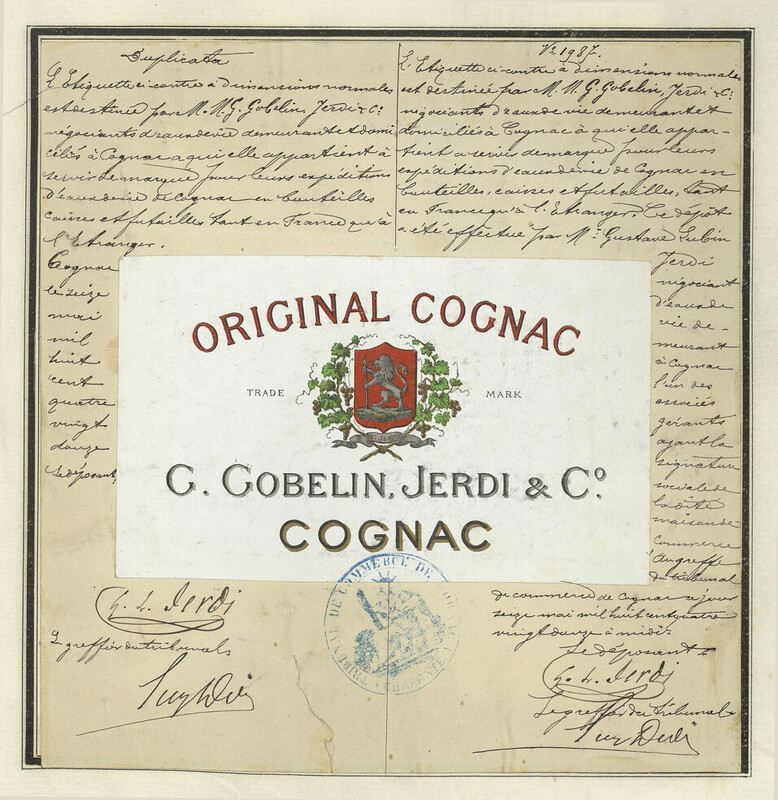 Duplicata
L'Etiquette ci-contre à dimensions normales
est destinée par M. M. G. Gobelin, Jerdi & Cⁱᵉ
négociants d'eau de vie demeurant et domi
ciliés à Cognac a qui elle appartient à
servir de marque pour leurs expéditions
d'eau de vie de Cognac en bouteilles
caisses et futailles tant en France qu'à
l'Etranger.
Cognac
le seize
mai
mil
huit
cent
quatre
vingt
douze
Le déposant
Nº 1987.
L'Etiquette ci-contre à dimensions normales
est destinée par M. M. G. Gobelin, Jerdi & Cⁱᵉ
négociants d'eaux de vie demeurant et
domiciliés à Cognac à qui elle appar-
tient a servir de marque pour leurs
expéditions d'eau de vie de Cognac en
bouteilles, caisses et futailles, tant
en France qu'à l'Etranger. Ce dépôt
a été effectué par Mʳ Gustave Lubin
Jerdi
négociant
d'eaux de
vie de-
meurant
à Cognac
l'un des
associés
gérants
ayant la
signature
sociale de
la dite
maison de
commerce
au greffe
du tribunal
de commerce de Cognac ce jour
seize mai mil huit cent quatre
vingt douze à midi.
Le déposant
G. L. Jerdi
Le greffier du tribunal
ORIGINAL COGNAC
TRADE MARK
G. GOBELIN, JERDI & Cº.
COGNAC
G. L. Jerdi
Le greffier du tribunal
TRIBUNAL DE COMMERCE DE COGNAC
(CHARENTE)